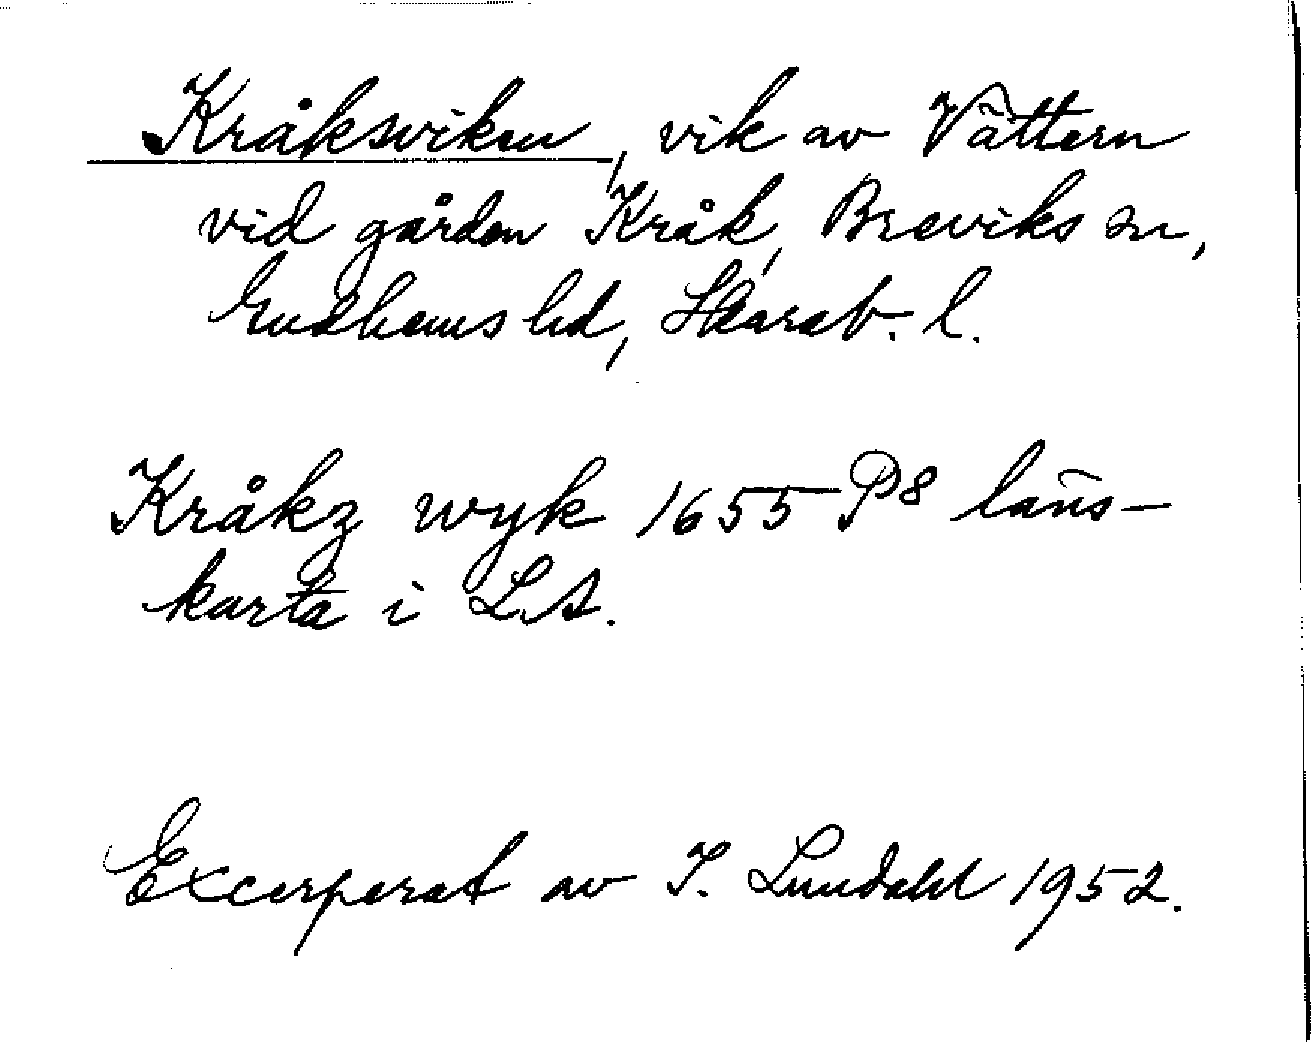 Kråksviken, vik av Vättern
vid gården Kråk, Breviks sn,
Gudhems hd, Skarab. l.
Kråkz wyk 1655 P8 läns-
karta i LA.
Excerperat av I. Lundahl 1952.